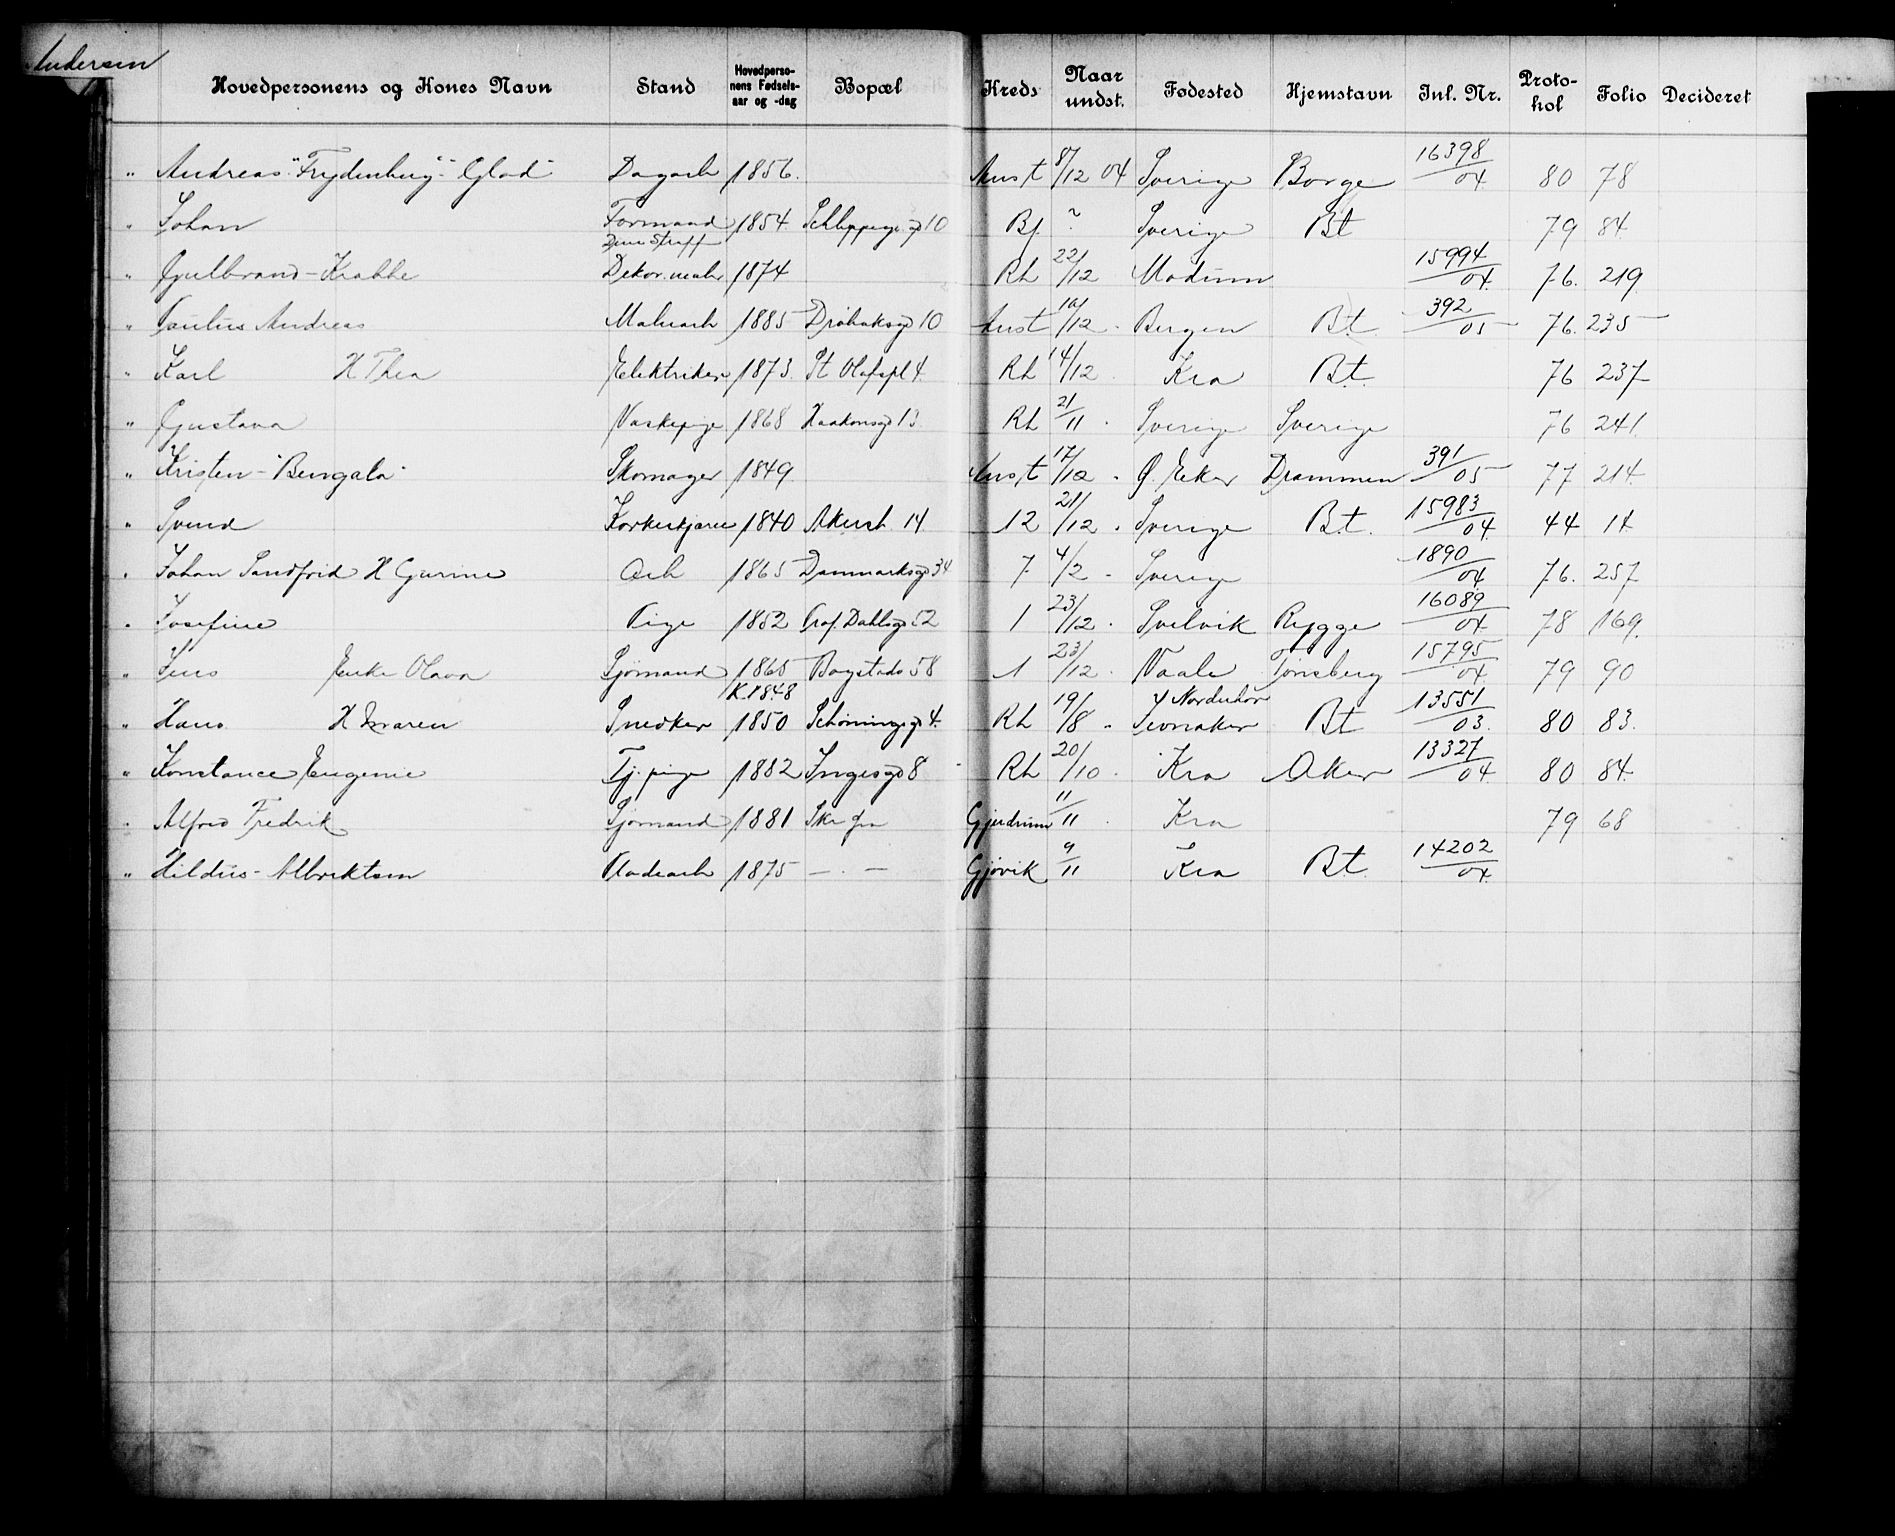 Andersen
Hovedpersonens og Kones Navn Stand Hovedpersonens Fødselsaar og -dag Bopæl Kreds Naar undst. Fødested Hjemstavn Inl. Nr. Protokol Folio Decideret
" Andreas "Frydenberg" "Glad" Dagarb 1856. Anst 8/12 04 Sverige Borge 16398/04 80 78
" Johan Formand 1854 Schleppegs gd 10 Bf. ? Sverige Bt 79 84
" Gulbrand - Krabbe Dekor. maler 1874 Rh 22/12 Modum 15994/04. 76. 219
" Paulus Andreas Malerarb 1885 Drøbaksgd 10 Anst 19/12 Bergen Bt. 392/05 76. 235
" Karl H Thea Elektriker 1873. St Olafspl 4. Rh 14/12 Kra Bt. 76 237
" Gustava Vaskepige 1868 Haakonsgd 13. Rh 21/11 Sverige Sverige 76 241
" Kristen - "Bengala" Skomager 1849 Anst 17/12 Ø. Eker Drammen 391/05 77 214.
" Svend Korkeskjærer 1840 Akersb 14. 12 21/12 Sverige Bt. 15983/04. 44 14.
" Johan Sandfrid H Gurine Arb 1865 Danmarksgd 34 7 4/2 Sverige 1890/04. 76. 257
" Josefine Pige 1852 Prof. Dahlsgd 52 1 23/12 Svelvik Rygge 16089/04. 78 169.
" Jens Enke Olava Sjømand 1865 K. 1848 Bogstadv 58 1 23/12 Vaale Tønsberg 15795/04 79 90
" Hans H Maren Snedker 1850 Schøningsgd 4. Rh 19/8 Norderhov Bt 13551/03. 80 83.
" Konstance Eugenie Tj. pige 1882 Ingesgd 8 Rh 20/10 Kra Aker 13327/04 80 84.
" Alfred Fredrik Sjømand 1881 Gjerdrum 11/11 Kra 79 68
" Hildus - Albriktsen Pladearb 1875 — . — Gjøvik 9/11 Kra Bt. 14202/04.